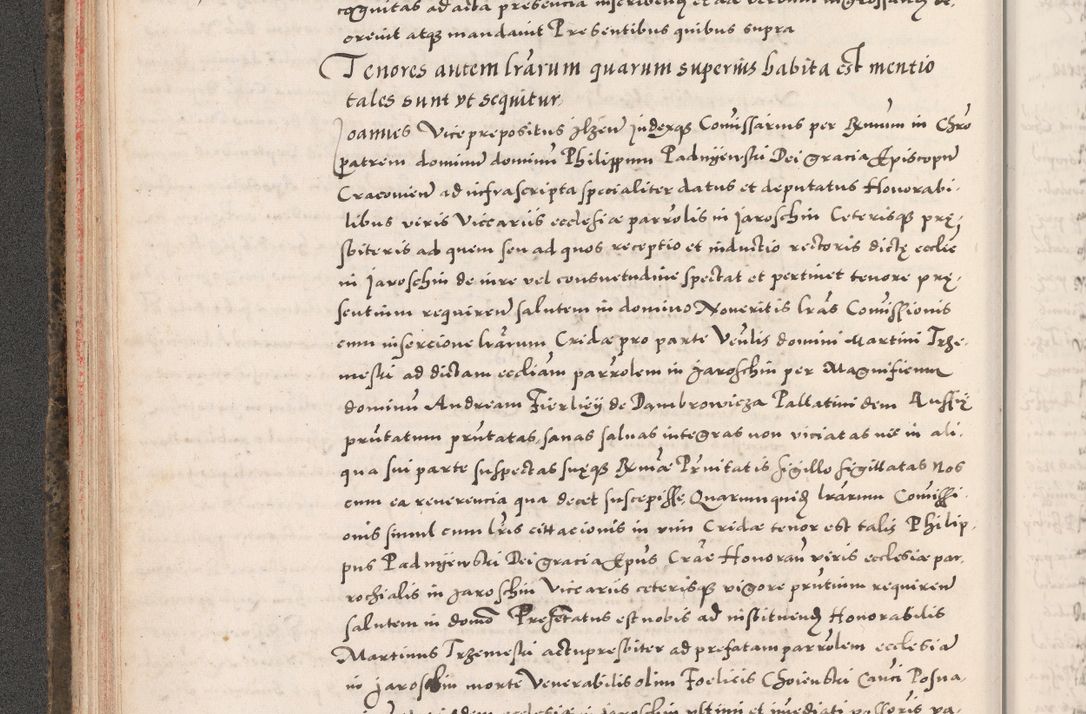 cognitas ad acta presencia inseribendas et ad verbum ingrossandas de-
crevit atq3 mandavit Presentibus quibus supra
Tenores autem lrarum quarum superius habita est mentio
tales sunt ut sequitur
Joannes Vice prepositus Ilzen Judexq3 Comissarius per Rmum in Chro
patrem dominum dominum Philippum Padnijewski Dei gracia Episcopum
Cracovien ad infrascripta specialiter datus et deputatus Honorabi-
libus viris Viccariis ecclesiæ parrolis in Jaroschin Ceterisq3 prę-
sbiteris ad quem seu ad quos receptio et inductio rectoris dictę ecclie
in Jaroschin de iure vel consuetudine spectat et pertinet tenore prę-
sentium requiren salutem in domino Noveritis lras Comissionis
cum insercione lrarum Cridæ pro parte Venlis domini Martini Trze-
meski ad dictam eccliam parrolem in Jaroschin per Magnificum
dominum Andream Fierlieij de Dambrowicza Pallatini dem Russię
prntatum prntatas, sanas salvas integras non viciatas nec in ali-
qua sui parte suspectas suęq3 Rmæ Prnitatis sigillo sigillatas Nos
cum ea reverencia qua decet suscepisse, Quarumquid lrarum Comissi-
onis simul cum lris cittacionis in vim Cridæ tenor est talis Philip-
pus Padnijewski Dei gracia Epus Craæ Honoran viris ecclesiæ par-
rochialis in Jaroschin Viceariis ceterisq3 vigore prntium requiren
salutem in domo Presetatus est nobis ad instituend Honorabilis
Martinus Trzemeski actu presbiter ad prefatam parrolem ecclesiam
in Jaroschin morte Venerabilis olim Foelicis Choienski Canci Posna-
in Jaroschin ultimi et imediati possoris va-